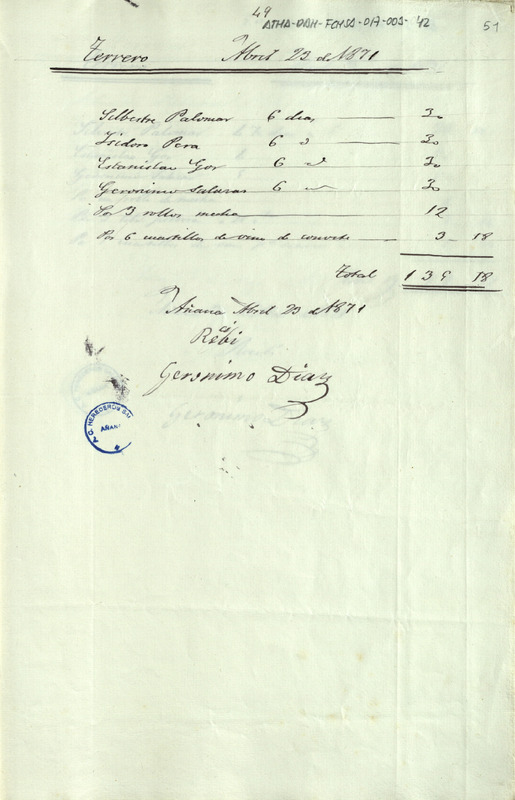 49
ATHA-DAH-FCHSA-017-003-42
51
Terrero Abril 23 de 1871
Silbestre Palomar 6 dias 30
Isidoro Pera 6 d 30
Estanislao Gor 6 d 30
Geronimo Salazar 6 30
Por 3 rollos mecha 12
Por 6 cuartillos de vino de convite 3 18
Total 135 18
Añana Abril 23 de 1871
Rěbi
Geronimo Diaz
HEREDEROS SAL
AÑANA